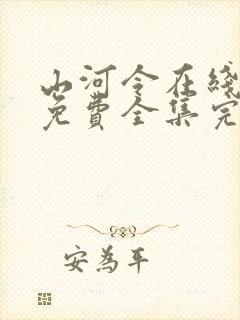 山河令在綫
免費全集完
安為平